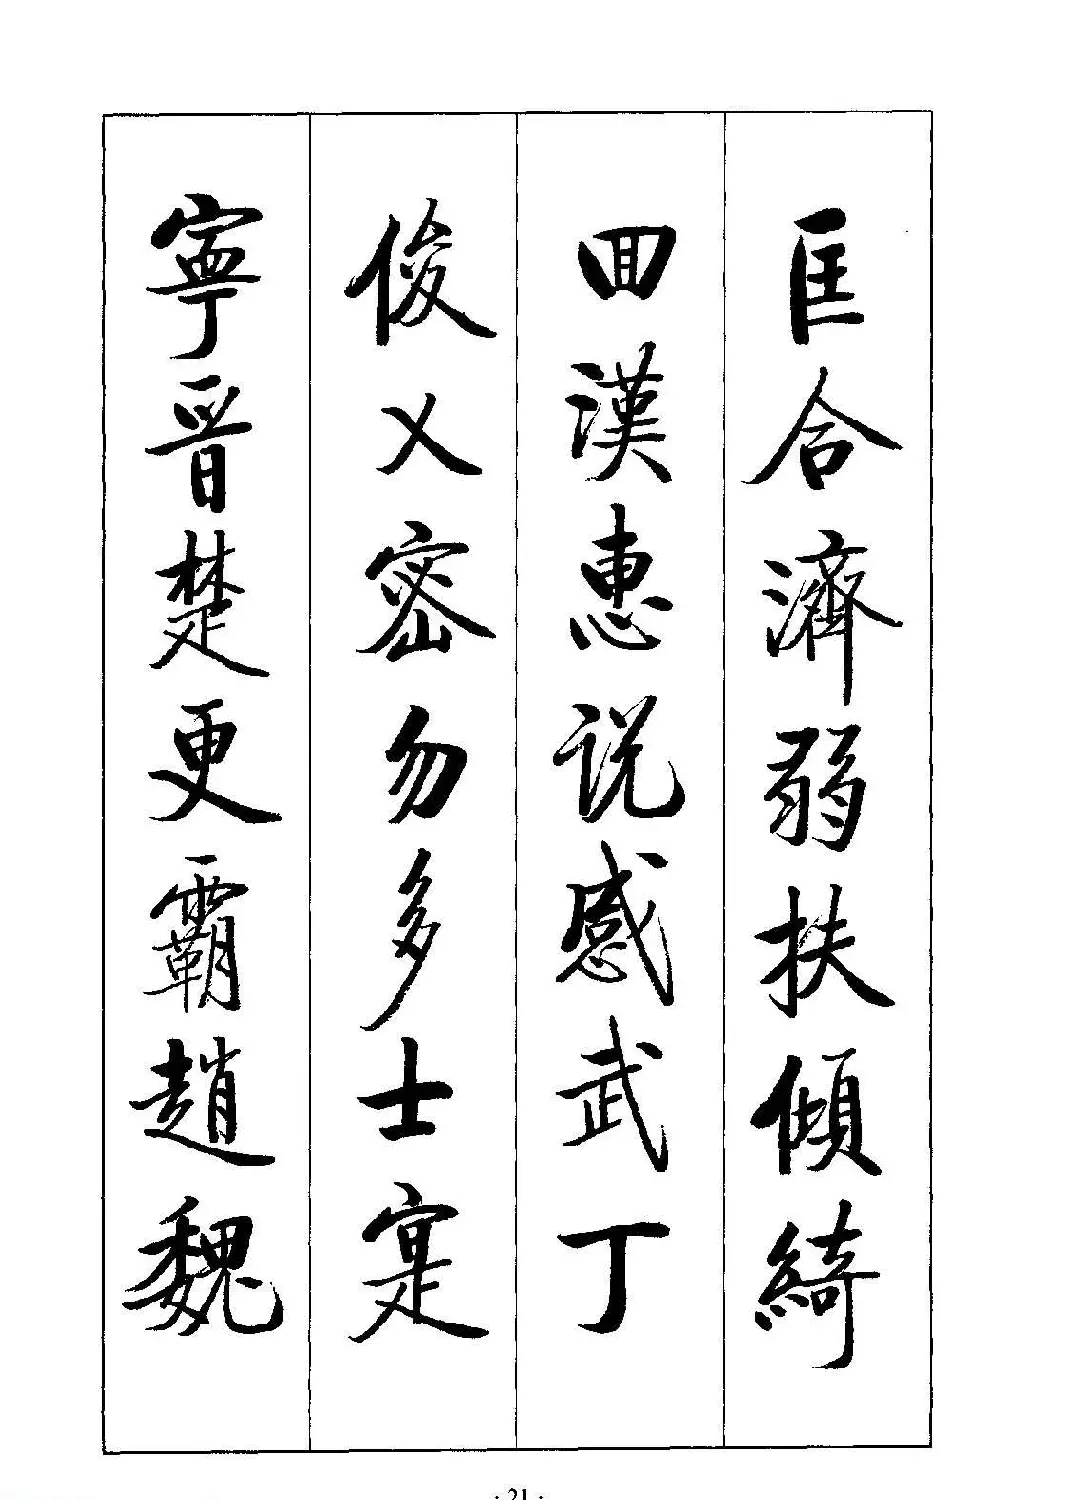 匡合濟弱扶傾綺
回漢惠说感武丁
俊乂密勿多士寔
寧晋楚更霸趙魏
· 21 ·